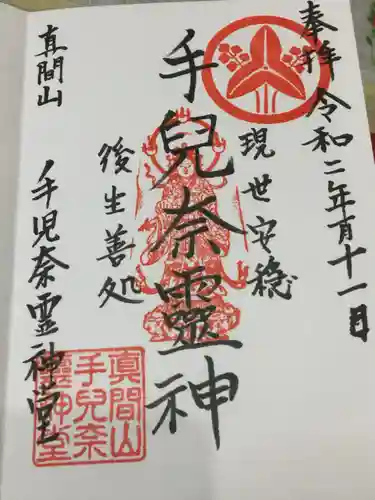 奉拝 令和二年
十一日
現世安穏
手兒奈靈神
後生善処
真間山 手児奈霊神堂
真間山
手兒奈
靈神堂